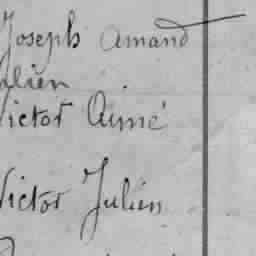 Joseph Amand
Julien
Victor Aimé
Victor Julien